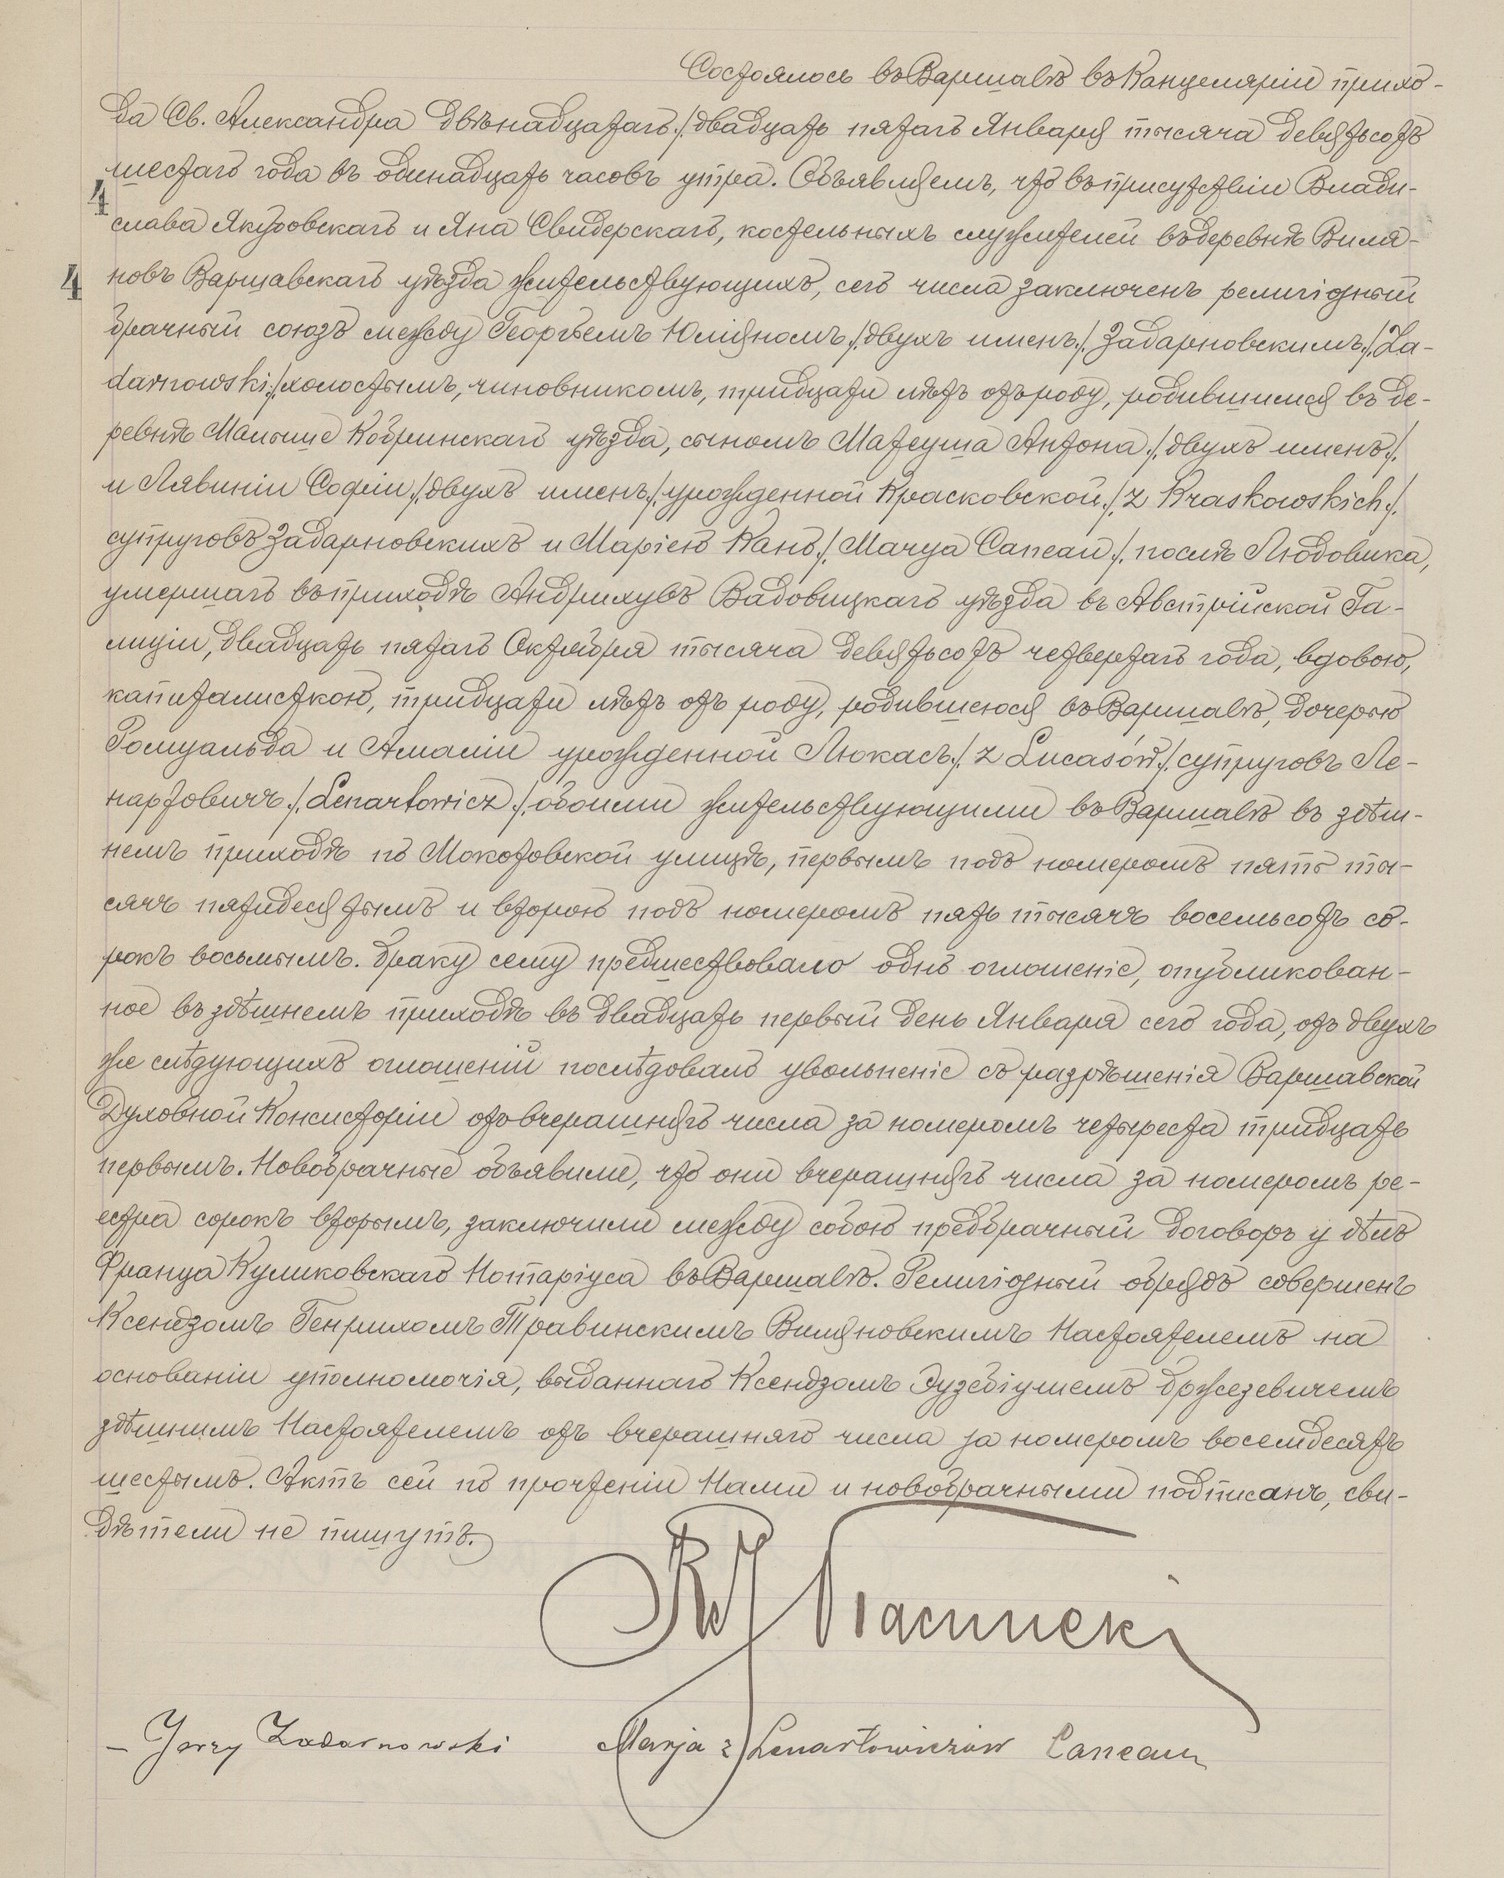 Состоялось въ Варшавѣ въ Канцеляріи прихо-
да Св. Александра двѣнадцатаго ./двадцать пятаго Января тысяча девятьсотъ
шестаго года въ одинадцать часовъ утра. Объявляемъ, что въ присутствіи Влади-
4
слава Якубовскаго и Яна Свидерскаго, костельныхъ служителей въ деревнѣ Виля-
4
новъ Варшавскаго уѣзда жительствующихъ, сего числа заключенъ религіозный
брачный союзъ между Георгіемъ Юліяномъ ./двухъ именъ/. Задарновскимъ ./Za-
darnowski/. холостымъ, чиновникомъ, тридцати лѣтъ отъ роду, родившимся въ де-
ревнѣ Малыше Кобринскаго уѣзда, сыномъ Матеуша Антона ./двухъ именъ/.
и Лявиніи Софіи ./двухъ именъ/. урожденной Красковской ./z Kraskowskich/.
супруговъ Задарновскихъ и Маріею Кано ./Marya Caneau/. послѣ Людовика,
умершаго въ приходѣ Андрихувъ Вадовицкаго уѣзда въ Австрійской Га-
лиціи, двадцать пятаго Октября тысяча девятьсотъ четвертаго года, вдовою,
капиталисткою, тридцати лѣтъ отъ роду, родившеюся въ Варшавѣ, дочерью
Ромуальда и Амаліи урожденной Люкасъ ./z Lucasów/. супруговъ Ле-
нартовичъ ./Lenartowicz/. обоими жительствующими въ Варшавѣ въ здѣш-
немъ приходѣ по Мокотовской улицѣ, первымъ подъ номеромъ пять ты-
сячъ пятидесятымъ и второю подъ номеромъ пять тысячъ восемьсотъ со-
рокъ восьмымъ. Браку сему предшествовало одно оглашеніе, опубликован-
ное въ здѣшнемъ приходѣ въ двадцать первый день Января сего года, отъ двухъ
же слѣдующихъ оглашеній послѣдовало увольненіе съ разрѣшенія Варшавской
Духовной Консисторіи отъ вчерашняго числа за номеромъ четыреста тридцать
первымъ. Новобрачные объявили, что они вчерашняго числа за номеромъ ре-
естра сорокъ вторымъ, заключили между собою предбрачный договоръ у дѣлъ
Франца Куликовскаго Нотаріуса въ Варшавѣ. Религіозный обрядъ совершенъ
Ксендзомъ Генрихомъ Травинскимъ Виляновскимъ Настоятелемъ на
основаніи уполномочія, выданнаго Ксендзомъ Эузебіушемъ Бржезевичемъ
здѣшнимъ Настоятелемъ отъ вчерашняго числа за номеромъ восемдесятъ
шестымъ. Актъ сей по прочтеніи Нами и новобрачными подписанъ, сви-
дѣтели не пишутъ.
Jerzy Zadarnowski Marja z Lenartowiczów Caneau